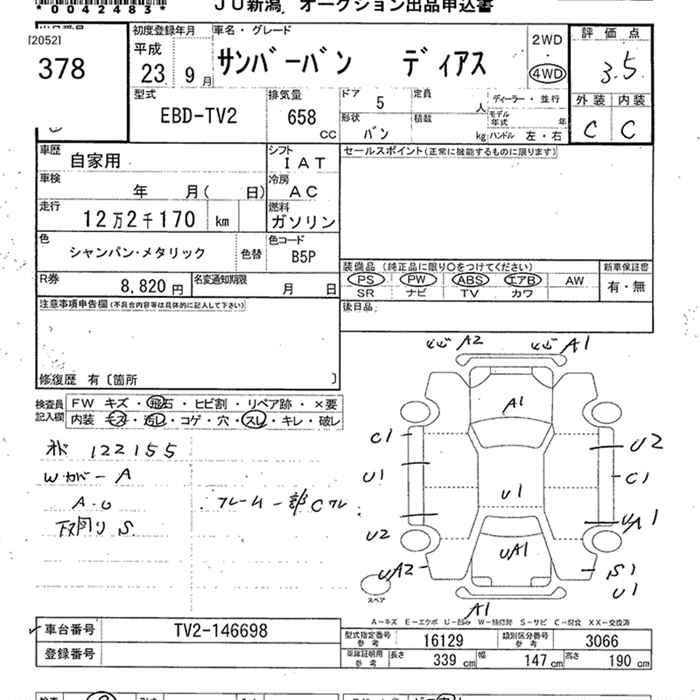 *0042483*
JU新潟 オークション出品申込書
[2052]
378
初度登録年月
平成
23 9月
車名・グレード
サンバーバン ディアス
2WD
4WD
評価点
3.5
型式
EBD-TV2
排気量
658
cc
ドア 5
定員 人
形状 バン
積載 kg
ディーラー・並行
モデル年式 年
ハンドル 左・右
外装 内装
C C
車歴 自家用
シフト IAT
車検 年 月( 日)
冷房 AC
走行 12万2千170 km
燃料 ガソリン
色 シャンパン・メタリック 色替
色コード B5P
R券 8,820円
名変通知期限 月 日
セールスポイント(正常に機能するものに限ります)
装備品(純正品に限り○をつけてください)
新車保証書
PS PW ABS エアB AW
SR ナビ TV カワ
有・無
後日品
注意事項申告欄(不具合内容等は具体的に記入して下さい)
修復歴 有〔箇所 〕
検査員記入欄
FW キズ・飛石・ヒビ割・リペア跡・×要
内装 モス・汚レ・コゲ・穴・スレ・キレ・破レ
122155
Wカバー A
A・U
下回り S
フレーム一部Cフレ
A2 A1
A1
C1 U2
U1 C1
U1
U2 UA1
UA1
UA2 S1
U1
A1
スペア
A-キズ E-エクボ U-凹み W-補修跡 S-サビ C-腐食 XX-交換済
車台番号 TV2-146698
登録番号
型式指定番号 参考 16129
類別区分番号 参考 3066
車検証明用 参考 長さ 339cm 幅 147cm 高さ 190cm